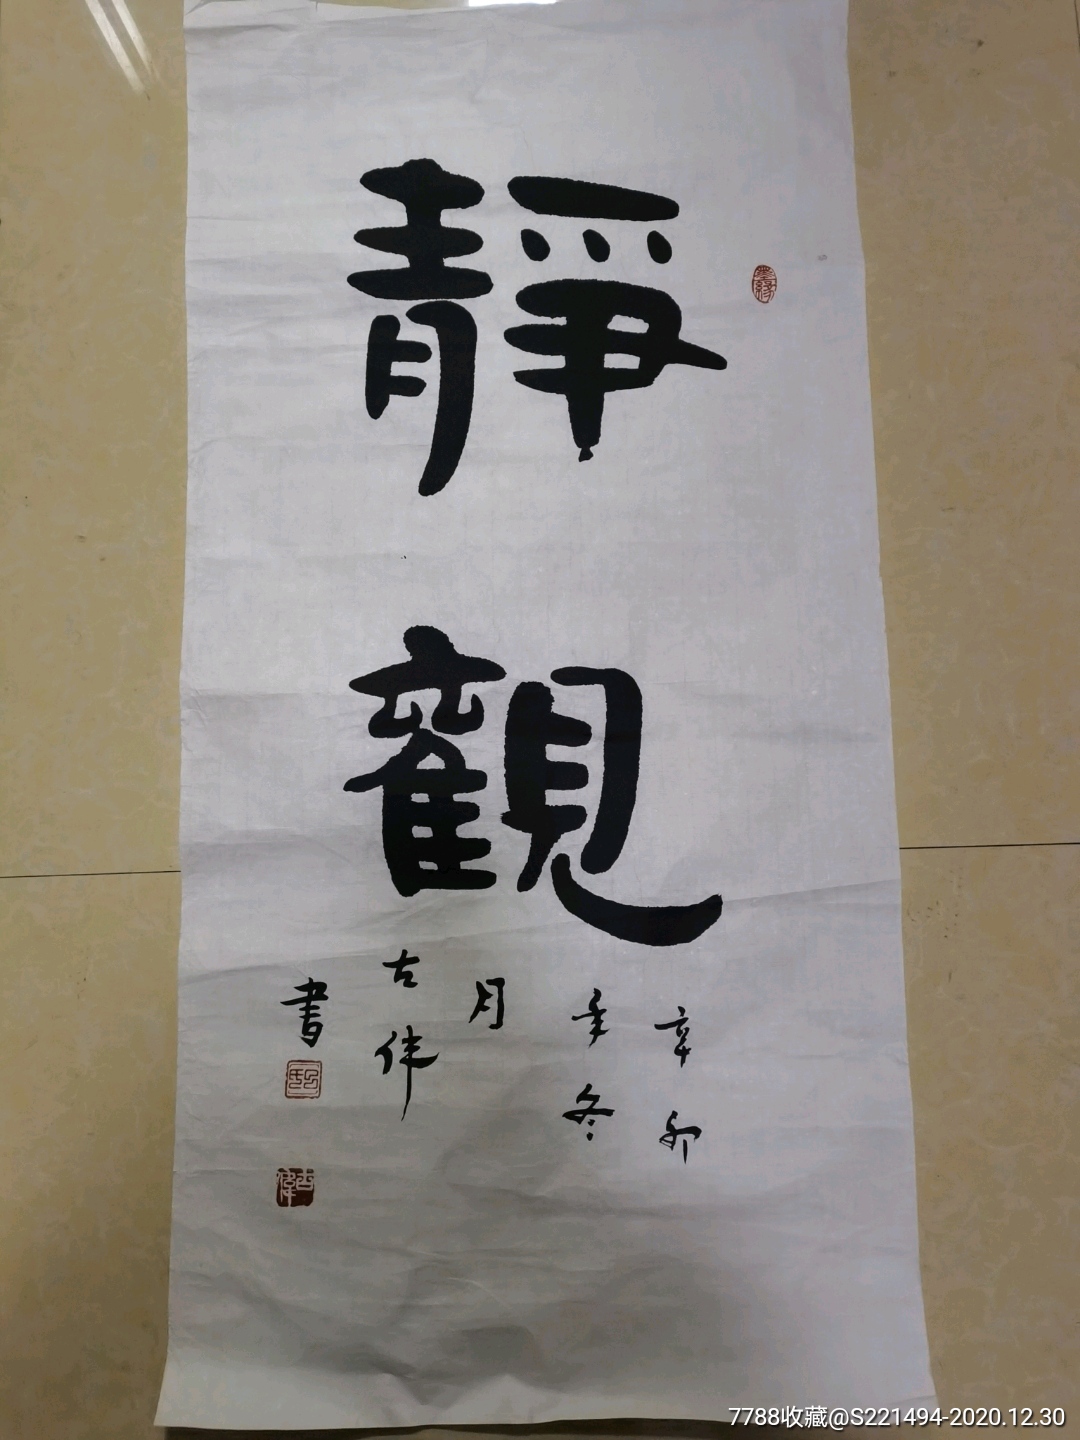 靜觀
辛卯
年冬
月
古偉
書
墨緣
古偉
7788收藏@S221494-2020.12.30